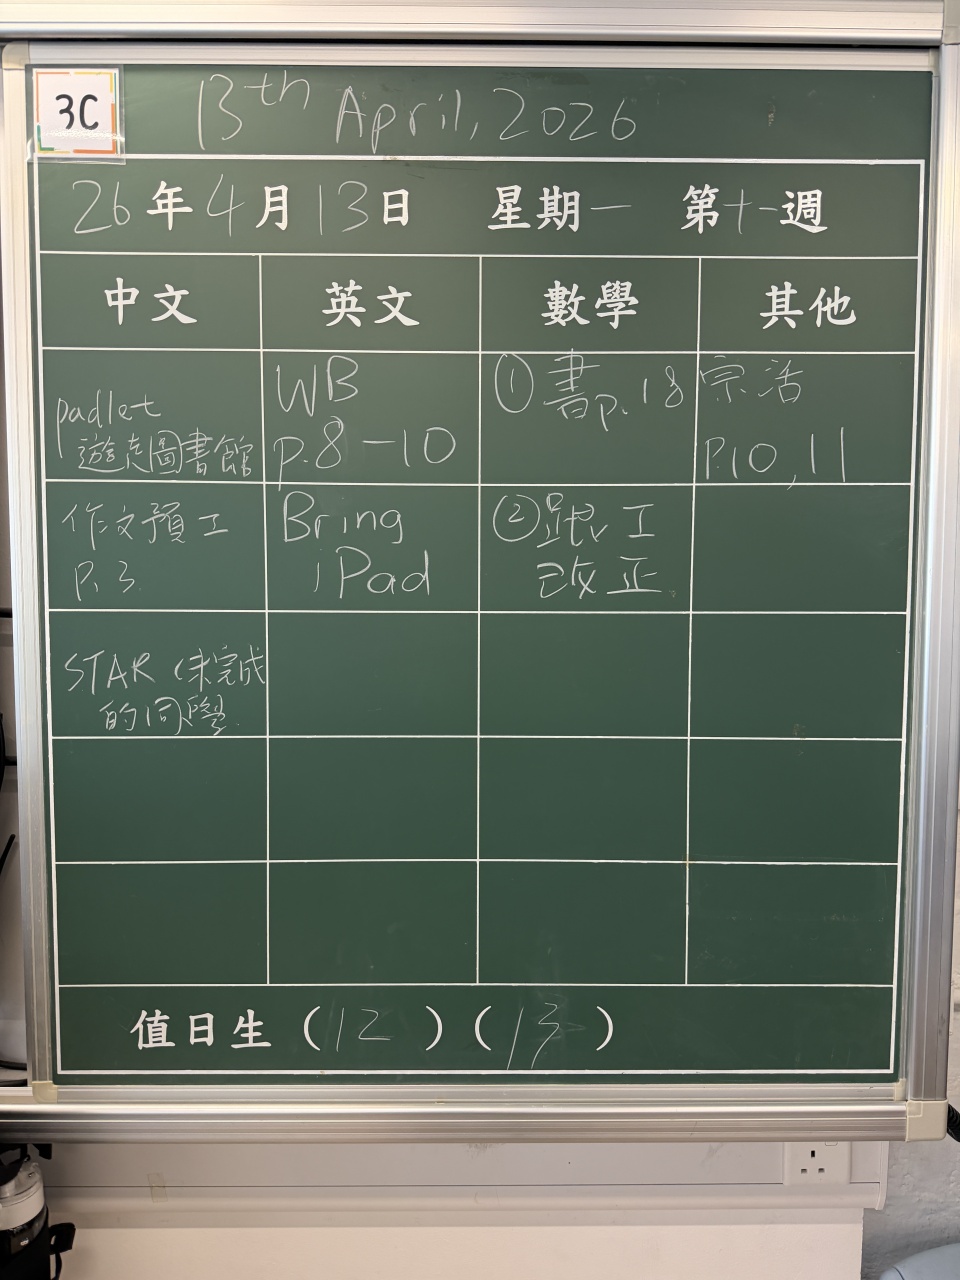 3C
13th April, 2026
26年4月13日 星期一 第十一週
中文 英文 數學 其他
padlet
遊走圖書館
WB
p.8-10
①書p.18
宗活
P.10,11
作文預工
P.3
Bring
iPad
②跟工
改正
STAR (未完成
的同學
值日生(12)(13)